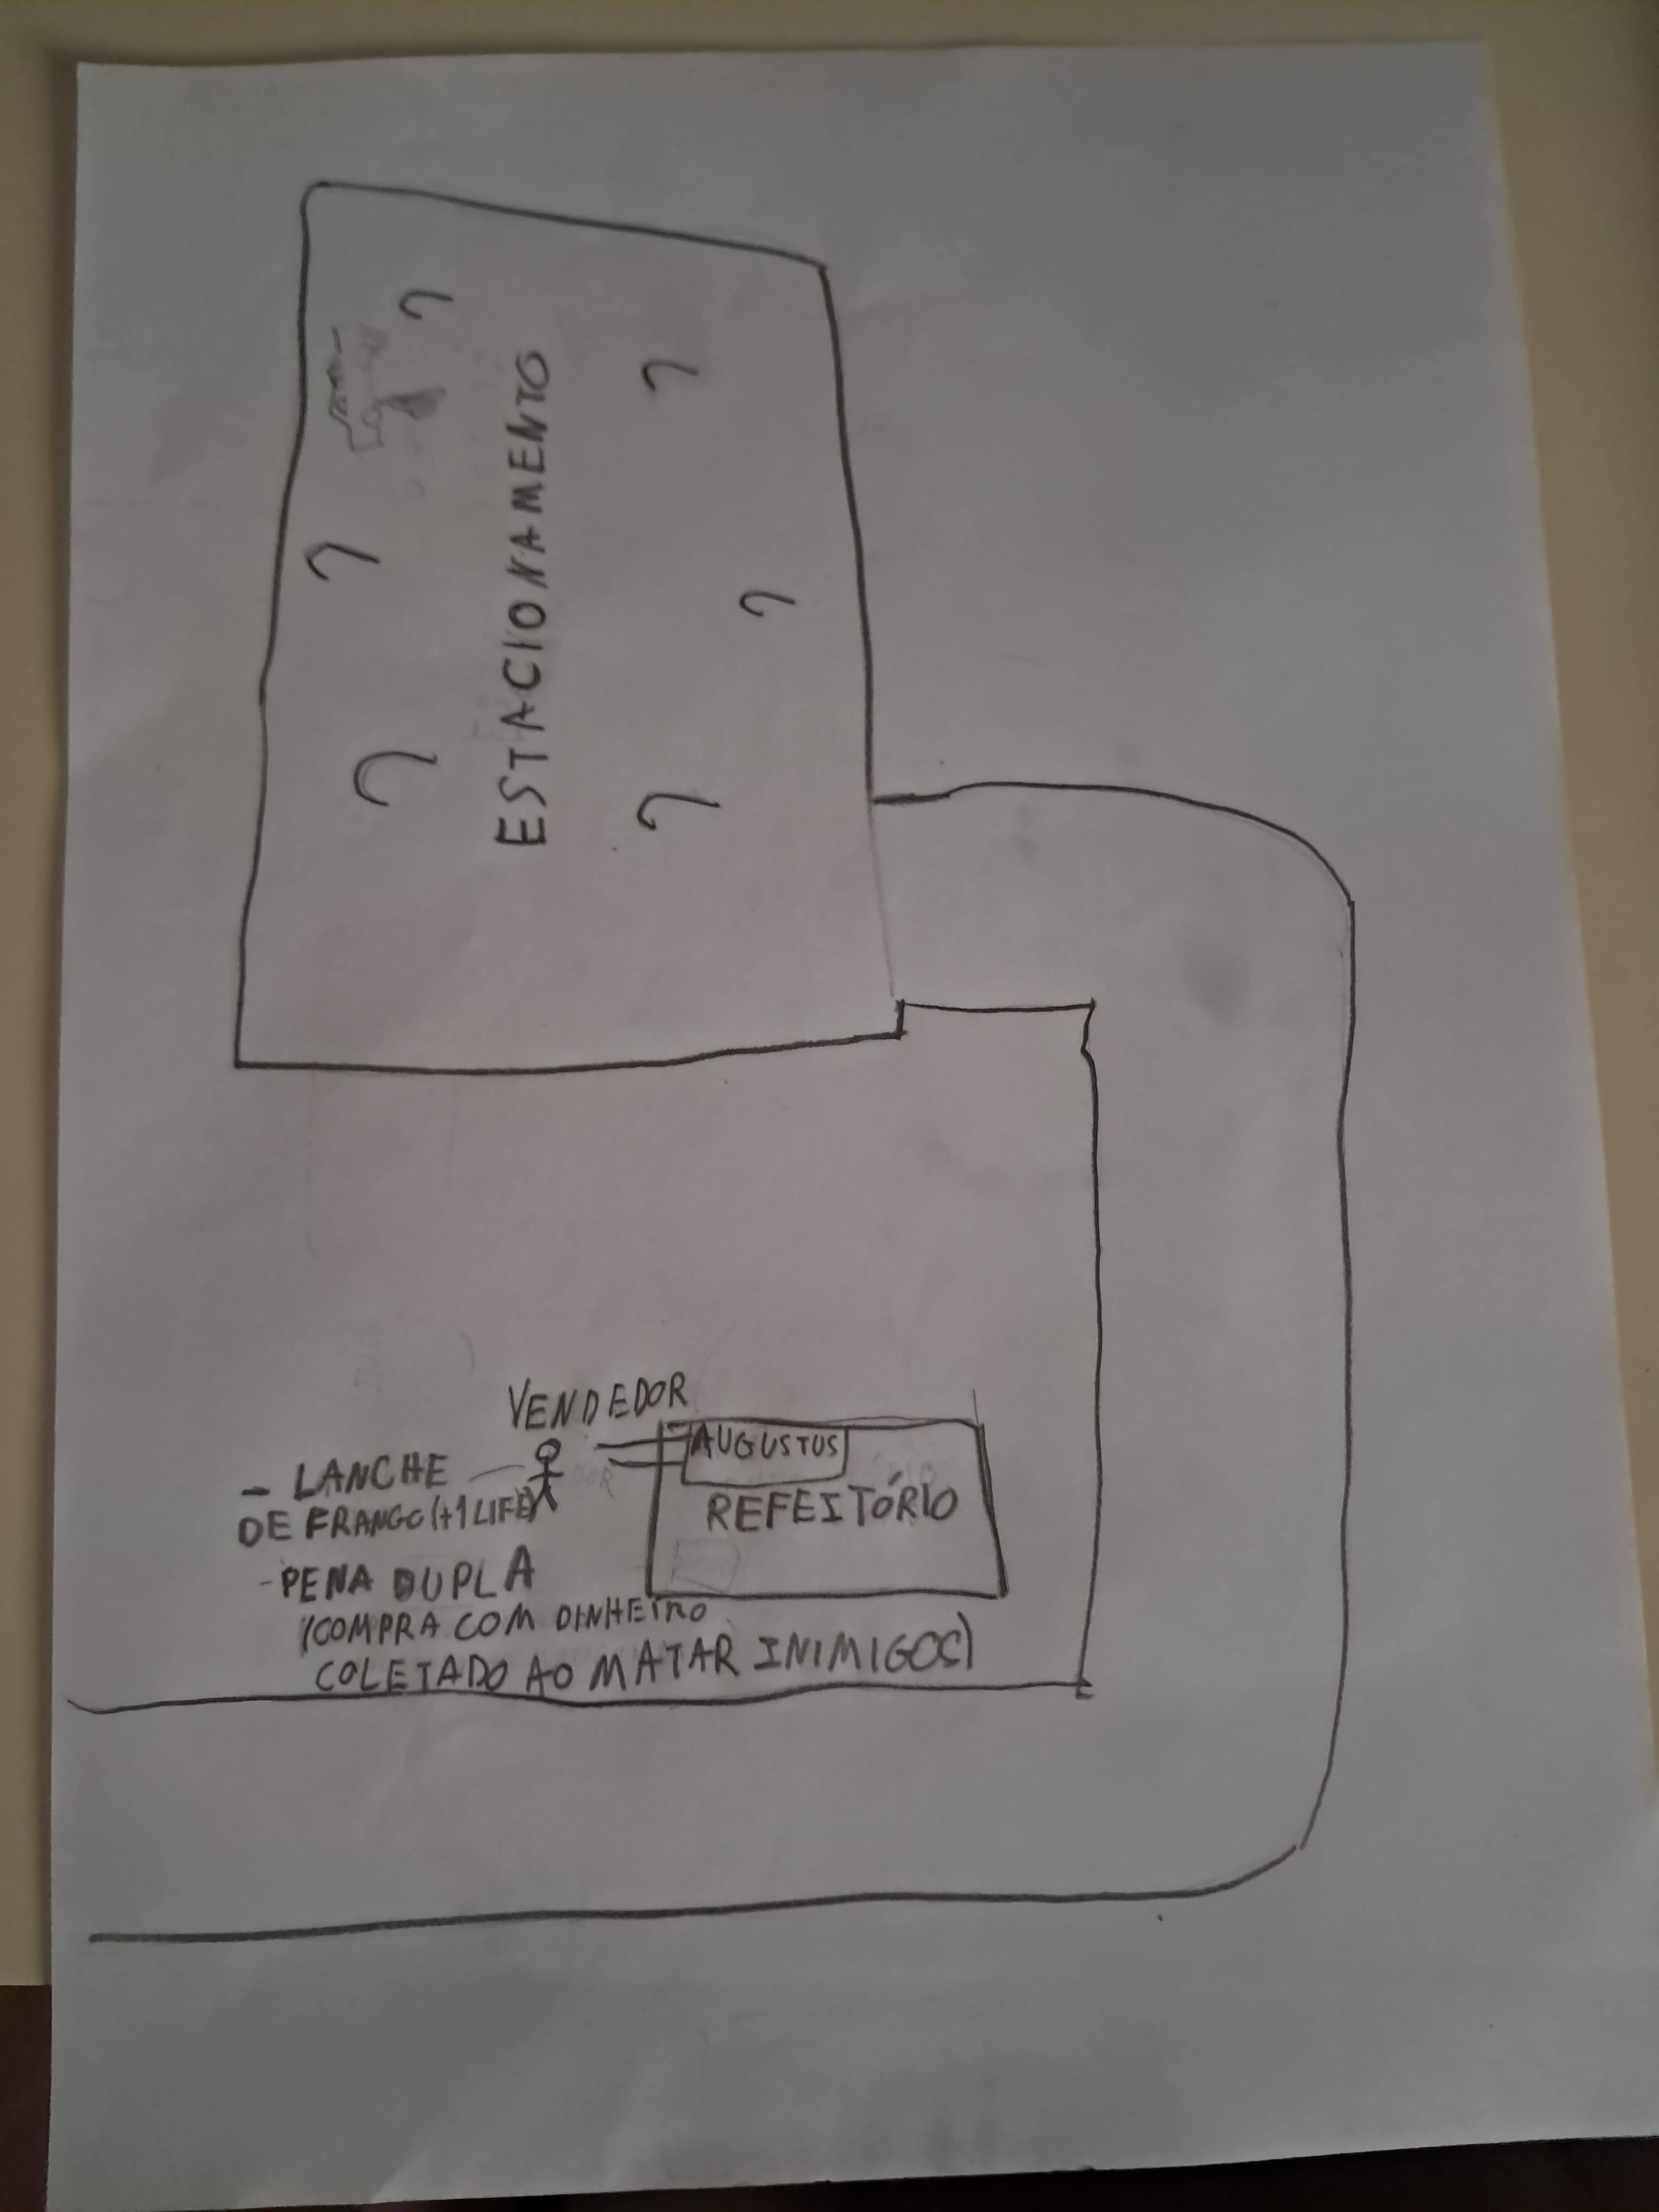 ESTACIONAMENTO
VENDEDOR
AUGUSTUS
REFEITÓRIO
- LANCHE
DE FRANGO (+1 LIFE)
- PENA DUPLA
(COMPRA COM DINHEIRO
COLETADO AO MATAR INIMIGOS)